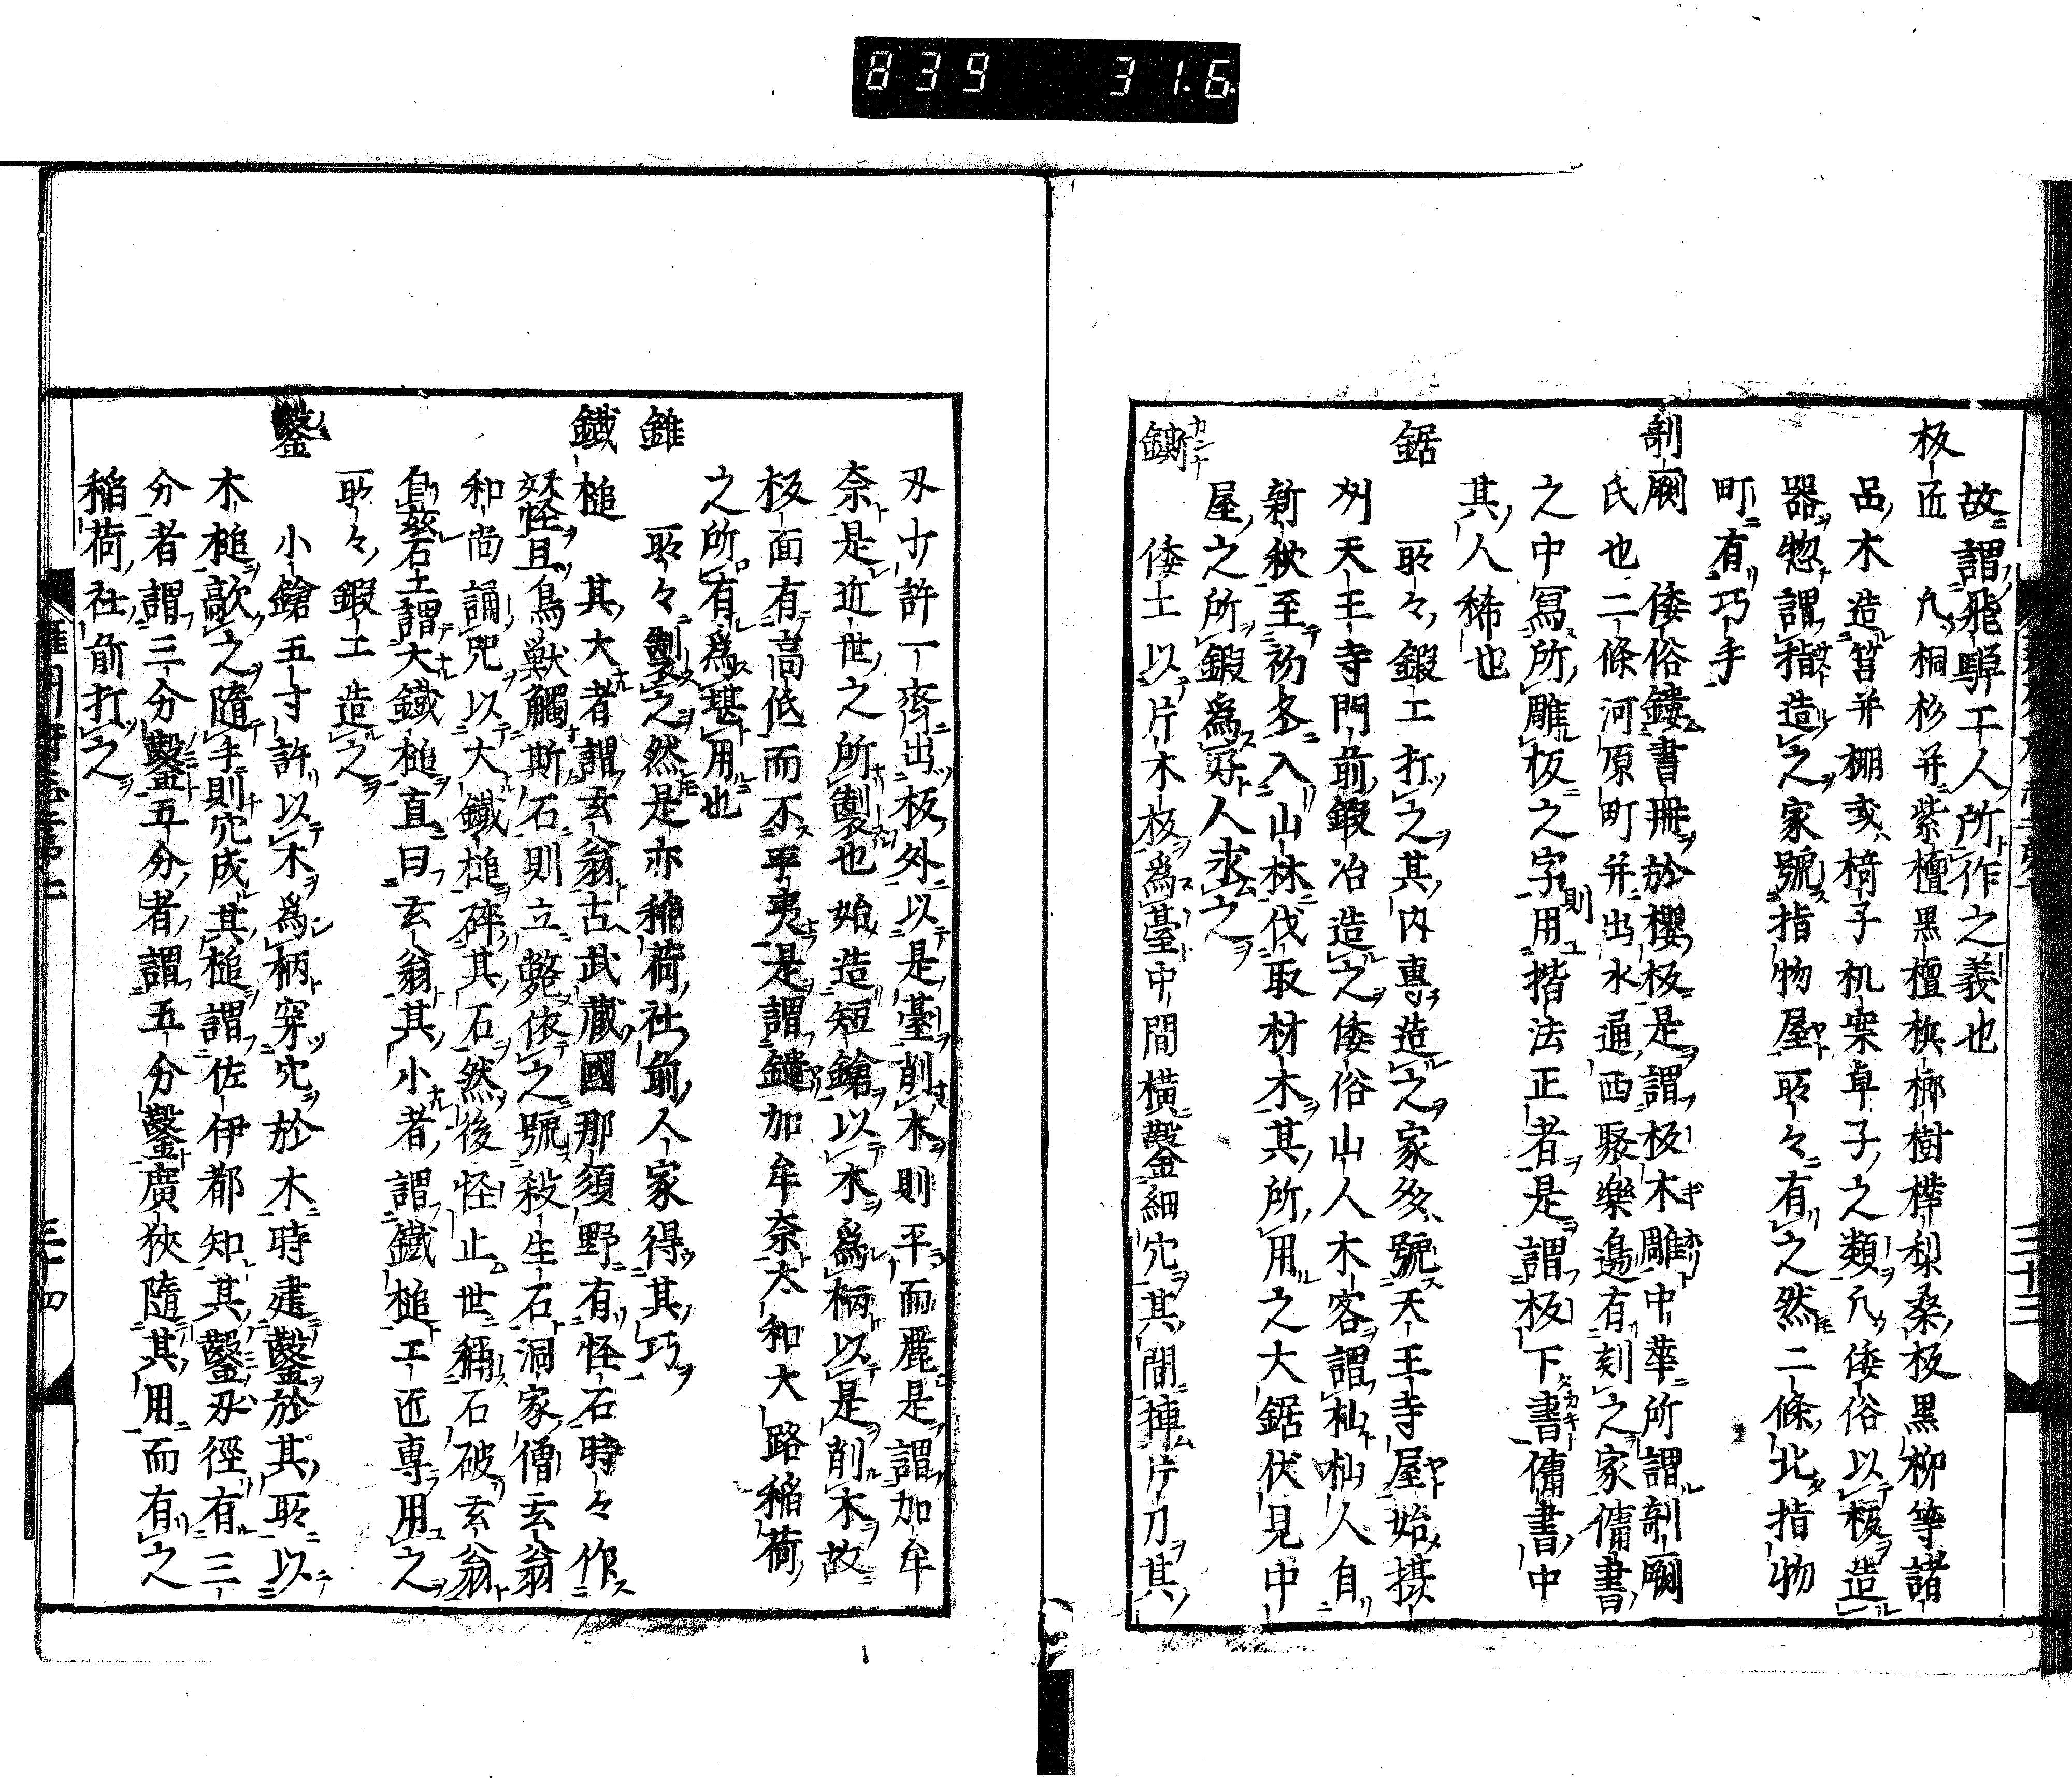 839 31.6.
故謂飛騨工人所作之義也
板匠 凡桐杉并紫檀黒檀檳榔樹樺梨桑板黒柳等諸
品木造筥并棚或椅子机案卓子之類凡倭俗以板造
器惣謂指造之家號指物屋所々有之然二條北指物
町有巧手
剞劂 倭俗鏤書冊於櫻板是謂板木雕中華所謂剞劂
氏也二條河原町并出水通西聚樂邊有刻之家傭書
之中寫所雕板之字則用揩法正者是謂板下書傭書中
其人稀也
鋸 所々鍛工打之其内專造之家多號天王寺屋始摂
刕天王寺門前鍛冶造之倭俗山人木客謂杣杣人自
新秋至初冬入山林伐取材木其所用之大鋸伏見中
屋之所鍛為好人求之
鐁 カンナ 倭土以片木板為臺中間横鑿細穴其間挿片刀其
刄寸許一齊出板外以是臺削木則平而麗是謂加牟
奈是近世之所製也始造短鎗以木為柄以是削木故
板面有高低而不平夷是謂鑓加牟奈太和大路稲荷
之所有為堪用也
錐 所々製之然是亦稲荷社前人家得其巧
鐵槌 其大者謂玄翁古武蔵國那須野有怪石時々作
妖怪且鳥獣觸斯石則立斃依之號殺生石洞家僧玄翁
和尚誦呪以大鐵槌碎其石然後怪止世稱石破玄翁
自茲石土謂大鐵槌直曰玄翁其小者謂鐵槌工匠專用之
所々鍛工造之
鑿 小鎗五寸許以木為柄穿穴於木時建鑿於其所以
木槌敲之隨手則穴成其槌謂佐伊都知其鑿刄徑有三
分者謂三分鑿五分者謂五分鑿廣狹隨其用而有之
稲荷社前打之